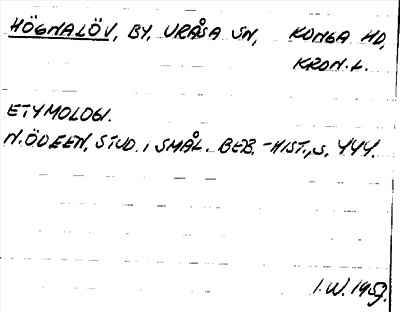 HÖGNALÖV, BY, URÅSA SN, KONGA HD,
KRON. L.
ETYMOLOGI.
N. ÖDEEN, STUD. I SMÅL. BEB.-HIST., S. 444.
I.W. 1959.